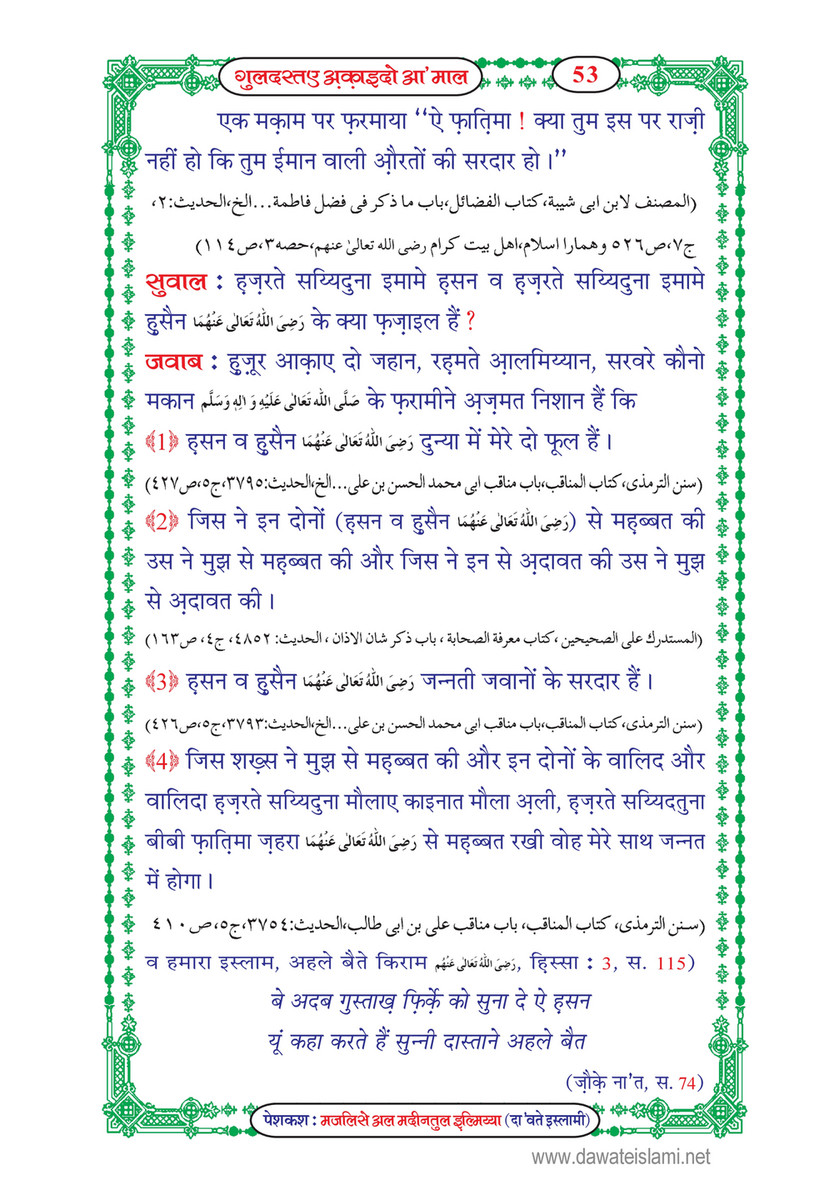 गुलदस्तए अ़क़ाइदो आ'माल 53
एक मक़ाम पर फ़रमाया ‘‘ऐ फ़ाति़मा ! क्या तुम इस पर राज़ी
नहीं हो कि तुम ईमान वाली औ़रतों की सरदार हो ।’’
(المصنف لابن ابی شیبة،کتاب الفضائل،باب ما ذکر فی فضل فاطمة...الخ،الحدیث:٢،
ج٧،ص٥٢٦ وھمارا اسلام،اھل بیت کرام رضی الله تعالیٰ عنھم،حصه٣،ص١١٤)
सुवाल : ह़ज़रते सय्यिदुना इमामे ह़सन व ह़ज़रते सय्यिदुना इमामे
हु़सैन رَضِیَ اللّٰہُ تَعَالٰی عَنْہُمَا के क्या फ़ज़ाइल हैं ?
जवाब : हु़ज़ूर आक़ाए दो जहान, रह़मते आ़लमिय्यान, सरवरे कौनो
मकान صَلَّی اللّٰہ تَعَالٰی عَلَیْہِ وَ اٰلِہٖ وَسَلَّم के फ़रामीने अ़ज़मत निशान हैं कि
﴾1﴿ ह़सन व हु़सैन رَضِیَ اللّٰہُ تَعَالٰی عَنْہُمَا दुन्या में मेरे दो फूल हैं ।
(سنن الترمذی،کتاب المناقب،باب مناقب ابی محمد الحسن بن علی...الخ،الحدیث:٣٧٩٥،ج٥،ص٤٢٧)
﴾2﴿ जिस ने इन दोनों (ह़सन व हु़सैन رَضِیَ اللّٰہُ تَعَالٰی عَنْہُمَا) से मह़ब्बत की
उस ने मुझ से मह़ब्बत की और जिस ने इन से अ़दावत की उस ने मुझ
से अ़दावत की ।
(المستدرك علی الصحیحین ،کتاب معرفة الصحابة ، باب ذکر شان الاذان ، الحدیث: ٤٨٥٢، ج٤، ص١٦٣)
﴾3﴿ ह़सन व हु़सैन رَضِیَ اللّٰہُ تَعَالٰی عَنْہُمَا जन्नती जवानों के सरदार हैं ।
(سنن الترمذی،کتاب المناقب،باب مناقب ابی محمد الحسن بن علی...الخ،الحدیث:٣٧٩٣،ج٥،ص٤٢٦)
﴾4﴿ जिस शख़्स ने मुझ से मह़ब्बत की और इन दोनों के वालिद और
वालिदा ह़ज़रते सय्यिदुना मौलाए काइनात मौला अ़ली, ह़ज़रते सय्यिदतुना
बीबी फ़ाति़मा ज़हरा رَضِیَ اللّٰہُ تَعَالٰی عَنْہُمَا से मह़ब्बत रखी वोह मेरे साथ जन्नत
में होगा ।
(سنن الترمذی، کتاب المناقب، باب مناقب علی بن ابی طالب،الحدیث:٣٧٥٤،ج٥،ص٤١٠
व हमारा इस्लाम, अहले बैते किराम رَضِیَ اللّٰہُ تَعَالٰی عَنْہُم, हि़स्सा : 3, स. 115)
बे अदब गुस्ताख़ फ़िर्क़े को सुना दे ऐ ह़सन
यूं कहा करते हैं सुन्नी दास्ताने अहले बैत
(ज़ौके़ ना'त, स. 74)
पेशकश : मजलिसे अल मदीनतुल इ़ल्मिय्या (दा'वते इस्लामी)
www.dawateislami.net